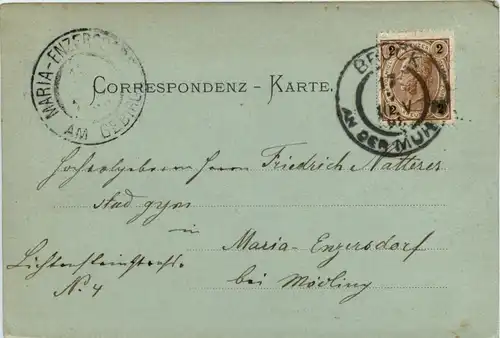 MARIA-ENZERSDORF
AM GEBIRGE
CORRESPONDENZ - KARTE.
2 2
2 2
BRUCK
AN DER MUR
Hochwohlgeboren Herrn Friedrich Matterer
stud gym
in
Maria-Enzersdorf
bei Mödling
Lichtensteinstrasse
No. 4